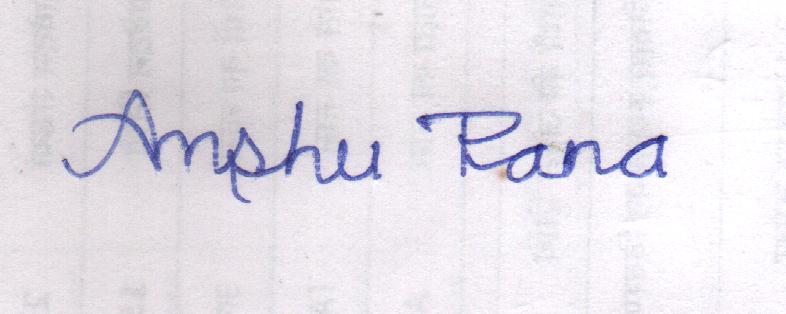 Anshu Rana